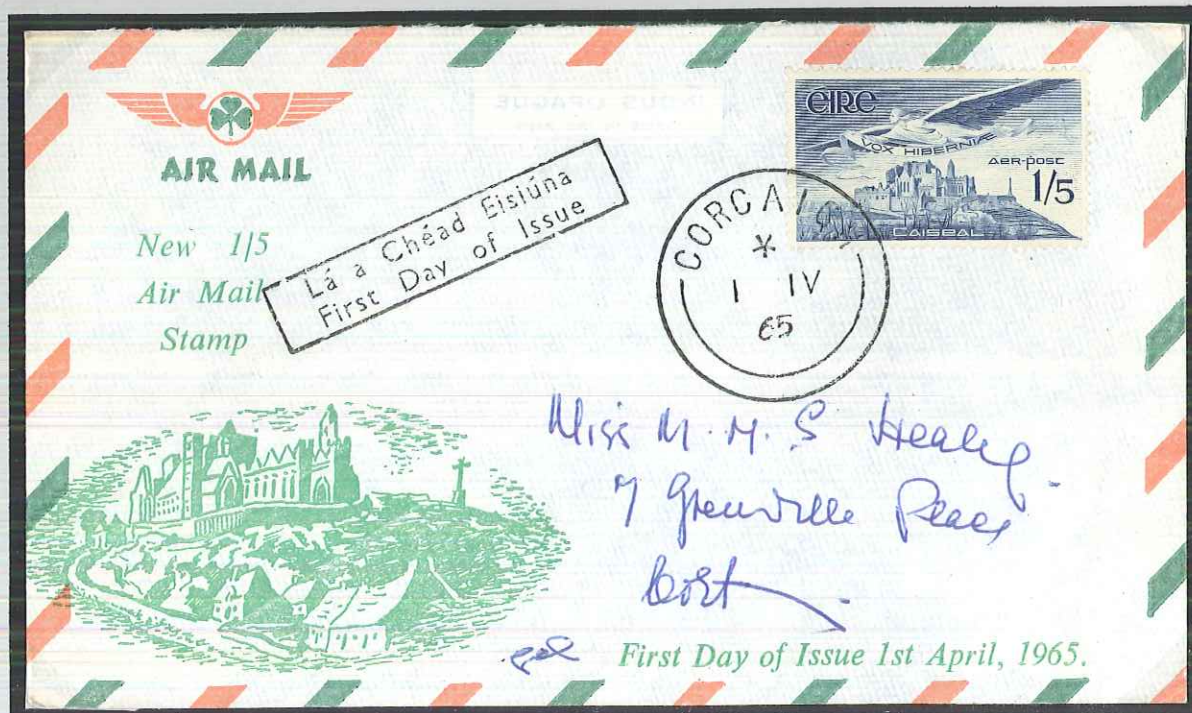 AIR MAIL
New 1/5
Air Mail
Stamp
Lá a Chéad Eisiúna
First Day of Issue
ÉIRE
VOX HIBERNIÆ
AER-POST
1/5
CAISEAL
CORCAIGH
1 IV
65
Miss M. M. S Healy
7 Grenville Place
Cork
First Day of Issue 1st April, 1965.